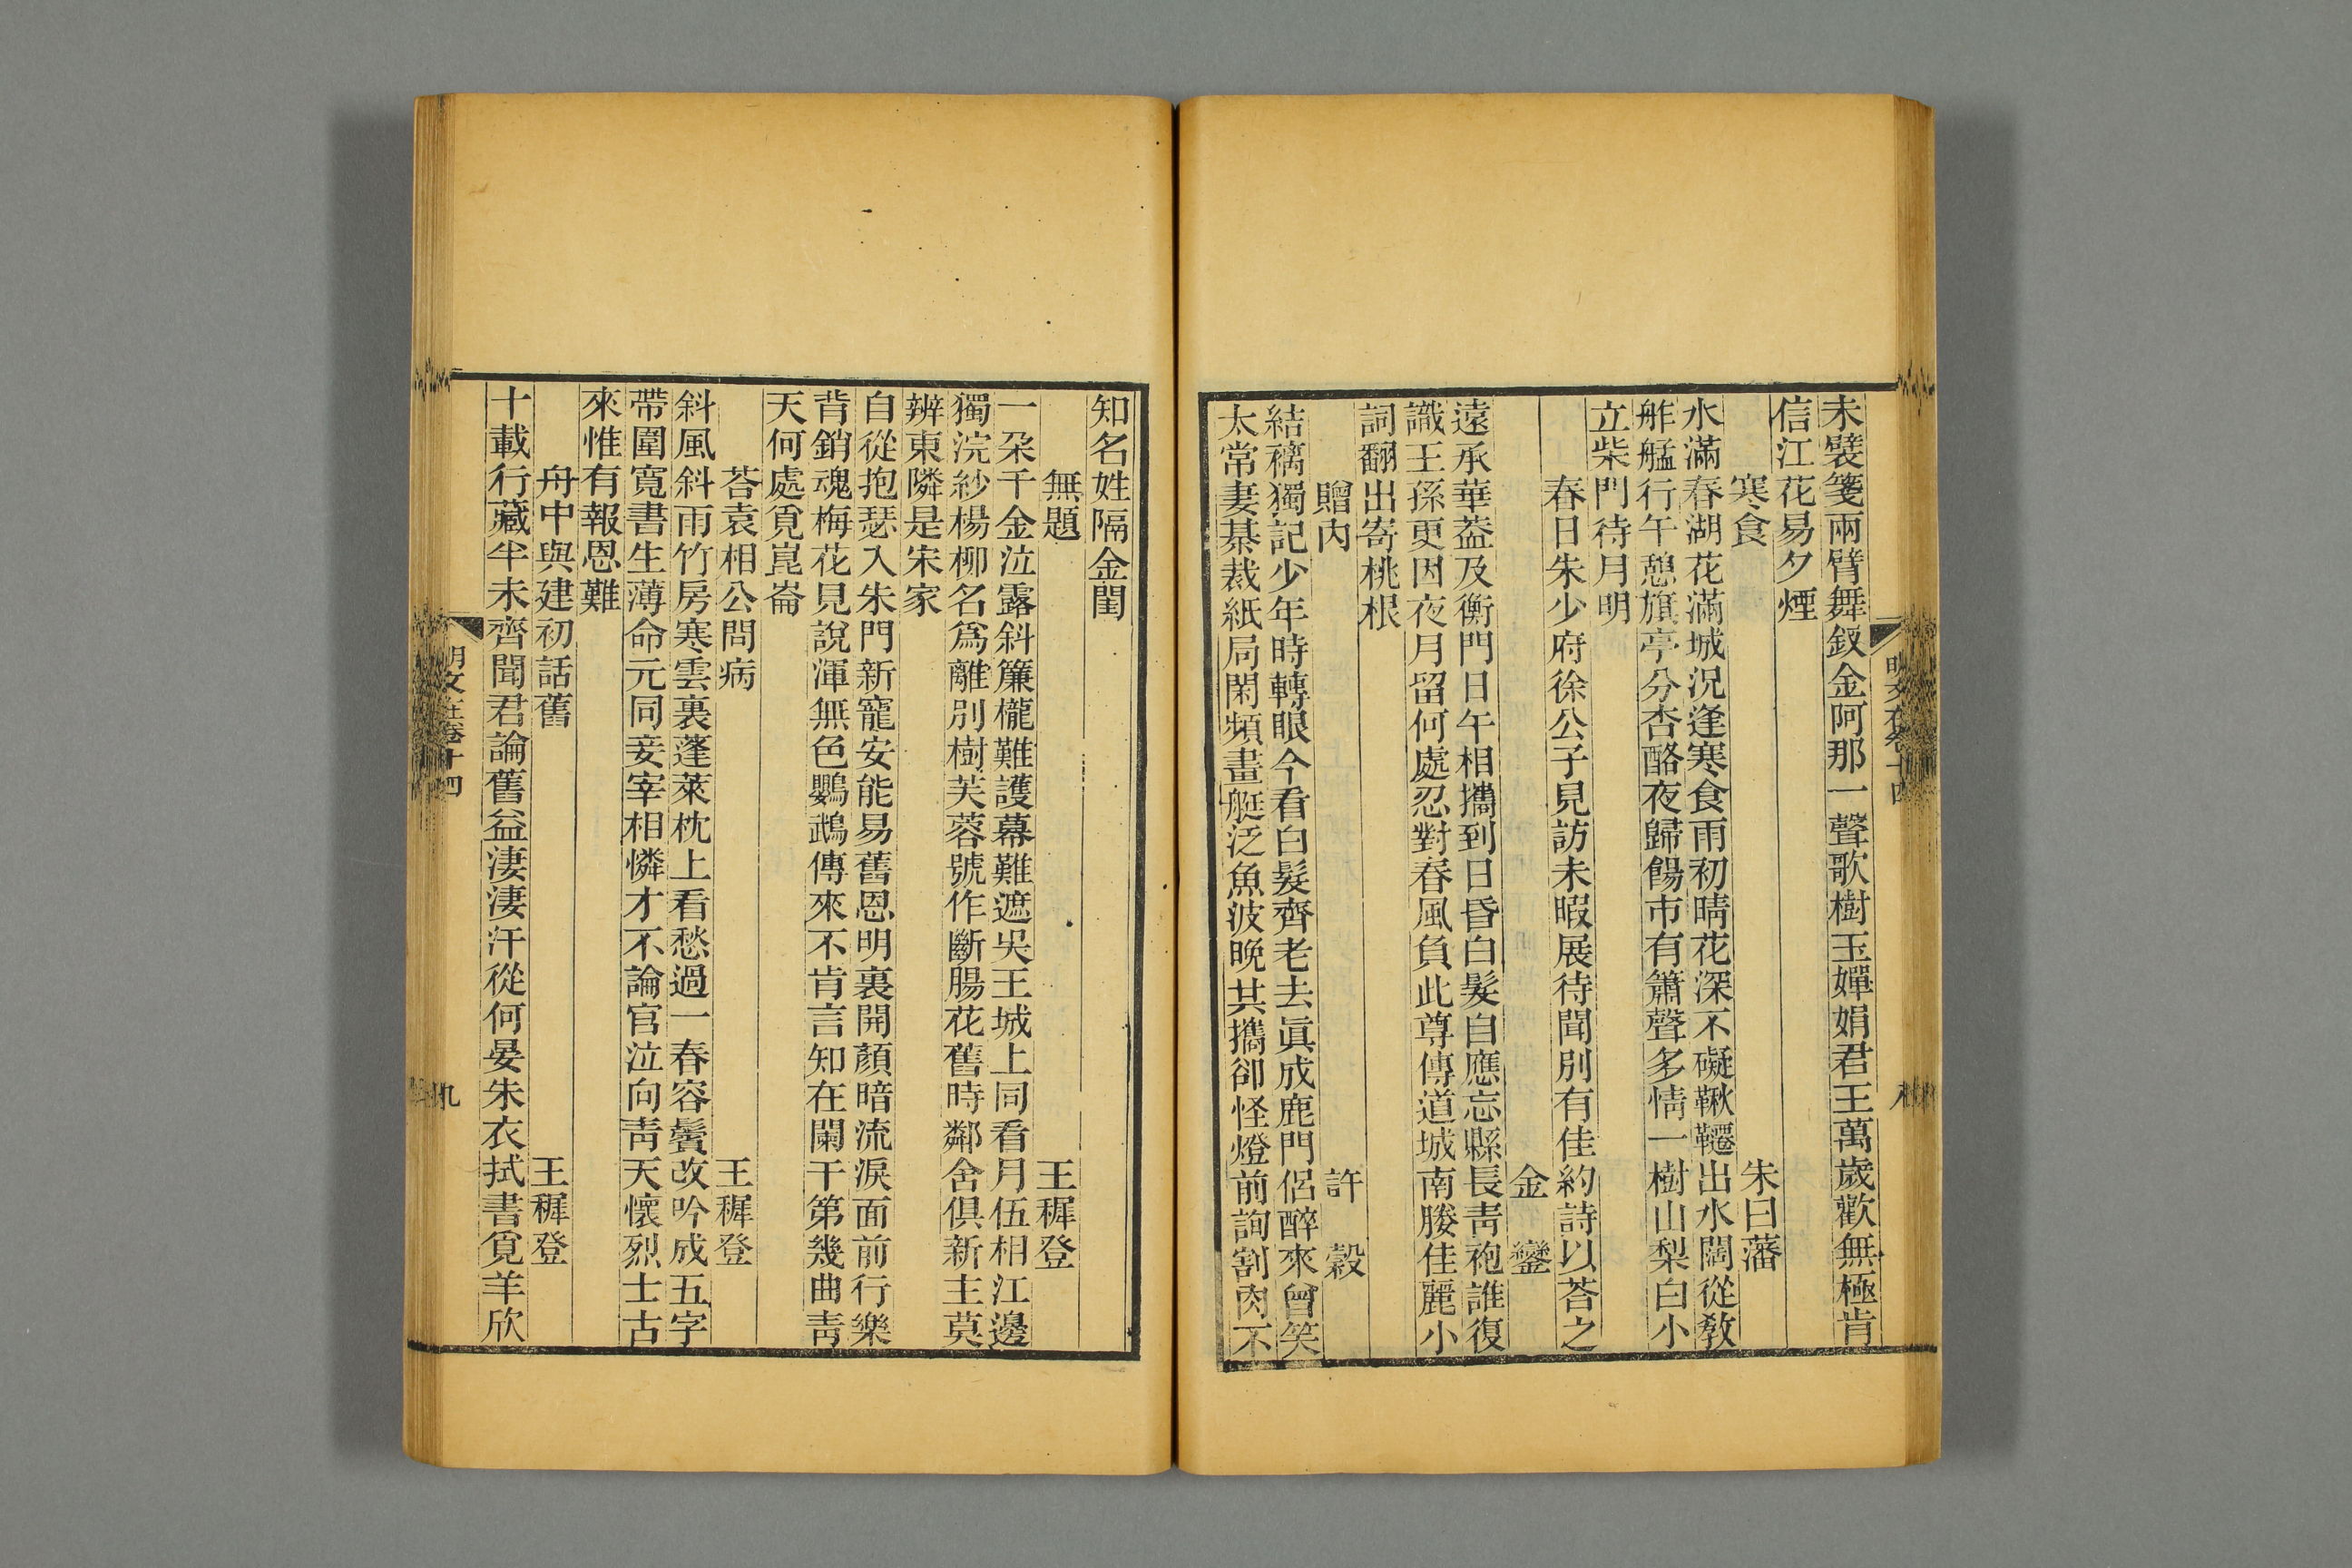 明文在卷十四
八
未襞箋兩臂舞釵金阿那一聲歌樹玉嬋娟君王萬歲歡無極肯
信江花易夕煙
寒食
朱曰藩
水滿春湖花滿城況逢寒食雨初晴花深不礙鞦韆出水闊從教
舴艋行午憩旗亭分杏酪夜歸餳市有簫聲多情一樹山梨白小
立柴門待月明
春日朱少府徐公子見訪未暇展待聞別有佳約詩以荅之
金鑾
遠承華葢及衡門日午相攜到日昏白髮自應忘縣長靑袍誰復
識王孫更因夜月留何處忍對春風負此尊傳道城南勝佳麗小
詞翻出寄桃根
贈內
許穀
結褵獨記少年時轉眼今看白髮齊老去眞成鹿門侶醉來曾笑
太常妻棊裁紙局閑頻畫艇泛魚波晚共攜卻怪燈前詢割肉不
知名姓隔金閨
無題
王穉登
一朶千金泣露斜簾櫳難護幕難遮吳王城上同看月伍相江邊
獨浣紗楊柳名爲離別樹芙蓉號作斷腸花舊時鄰舍俱新主莫
辨東隣是宋家
自從抱瑟入朱門新寵安能易舊恩明裏開顏暗流淚面前行樂
背銷魂梅花見說渾無色鸚鵡傳來不肯言知在闌干第幾曲靑
天何處覓崑崙
荅袁相公問病
王穉登
斜風斜雨竹房寒雲裏蓬萊枕上看愁過一春容鬢改吟成五字
帶圍寬書生薄命元同妾宰相憐才不論官泣向靑天懷烈士古
來惟有報恩難
舟中與建初話舊
王穉登
十載行藏半未齊聞君論舊益淒淒汗從何晏朱衣拭書覓羊欣
明文在卷十四
九